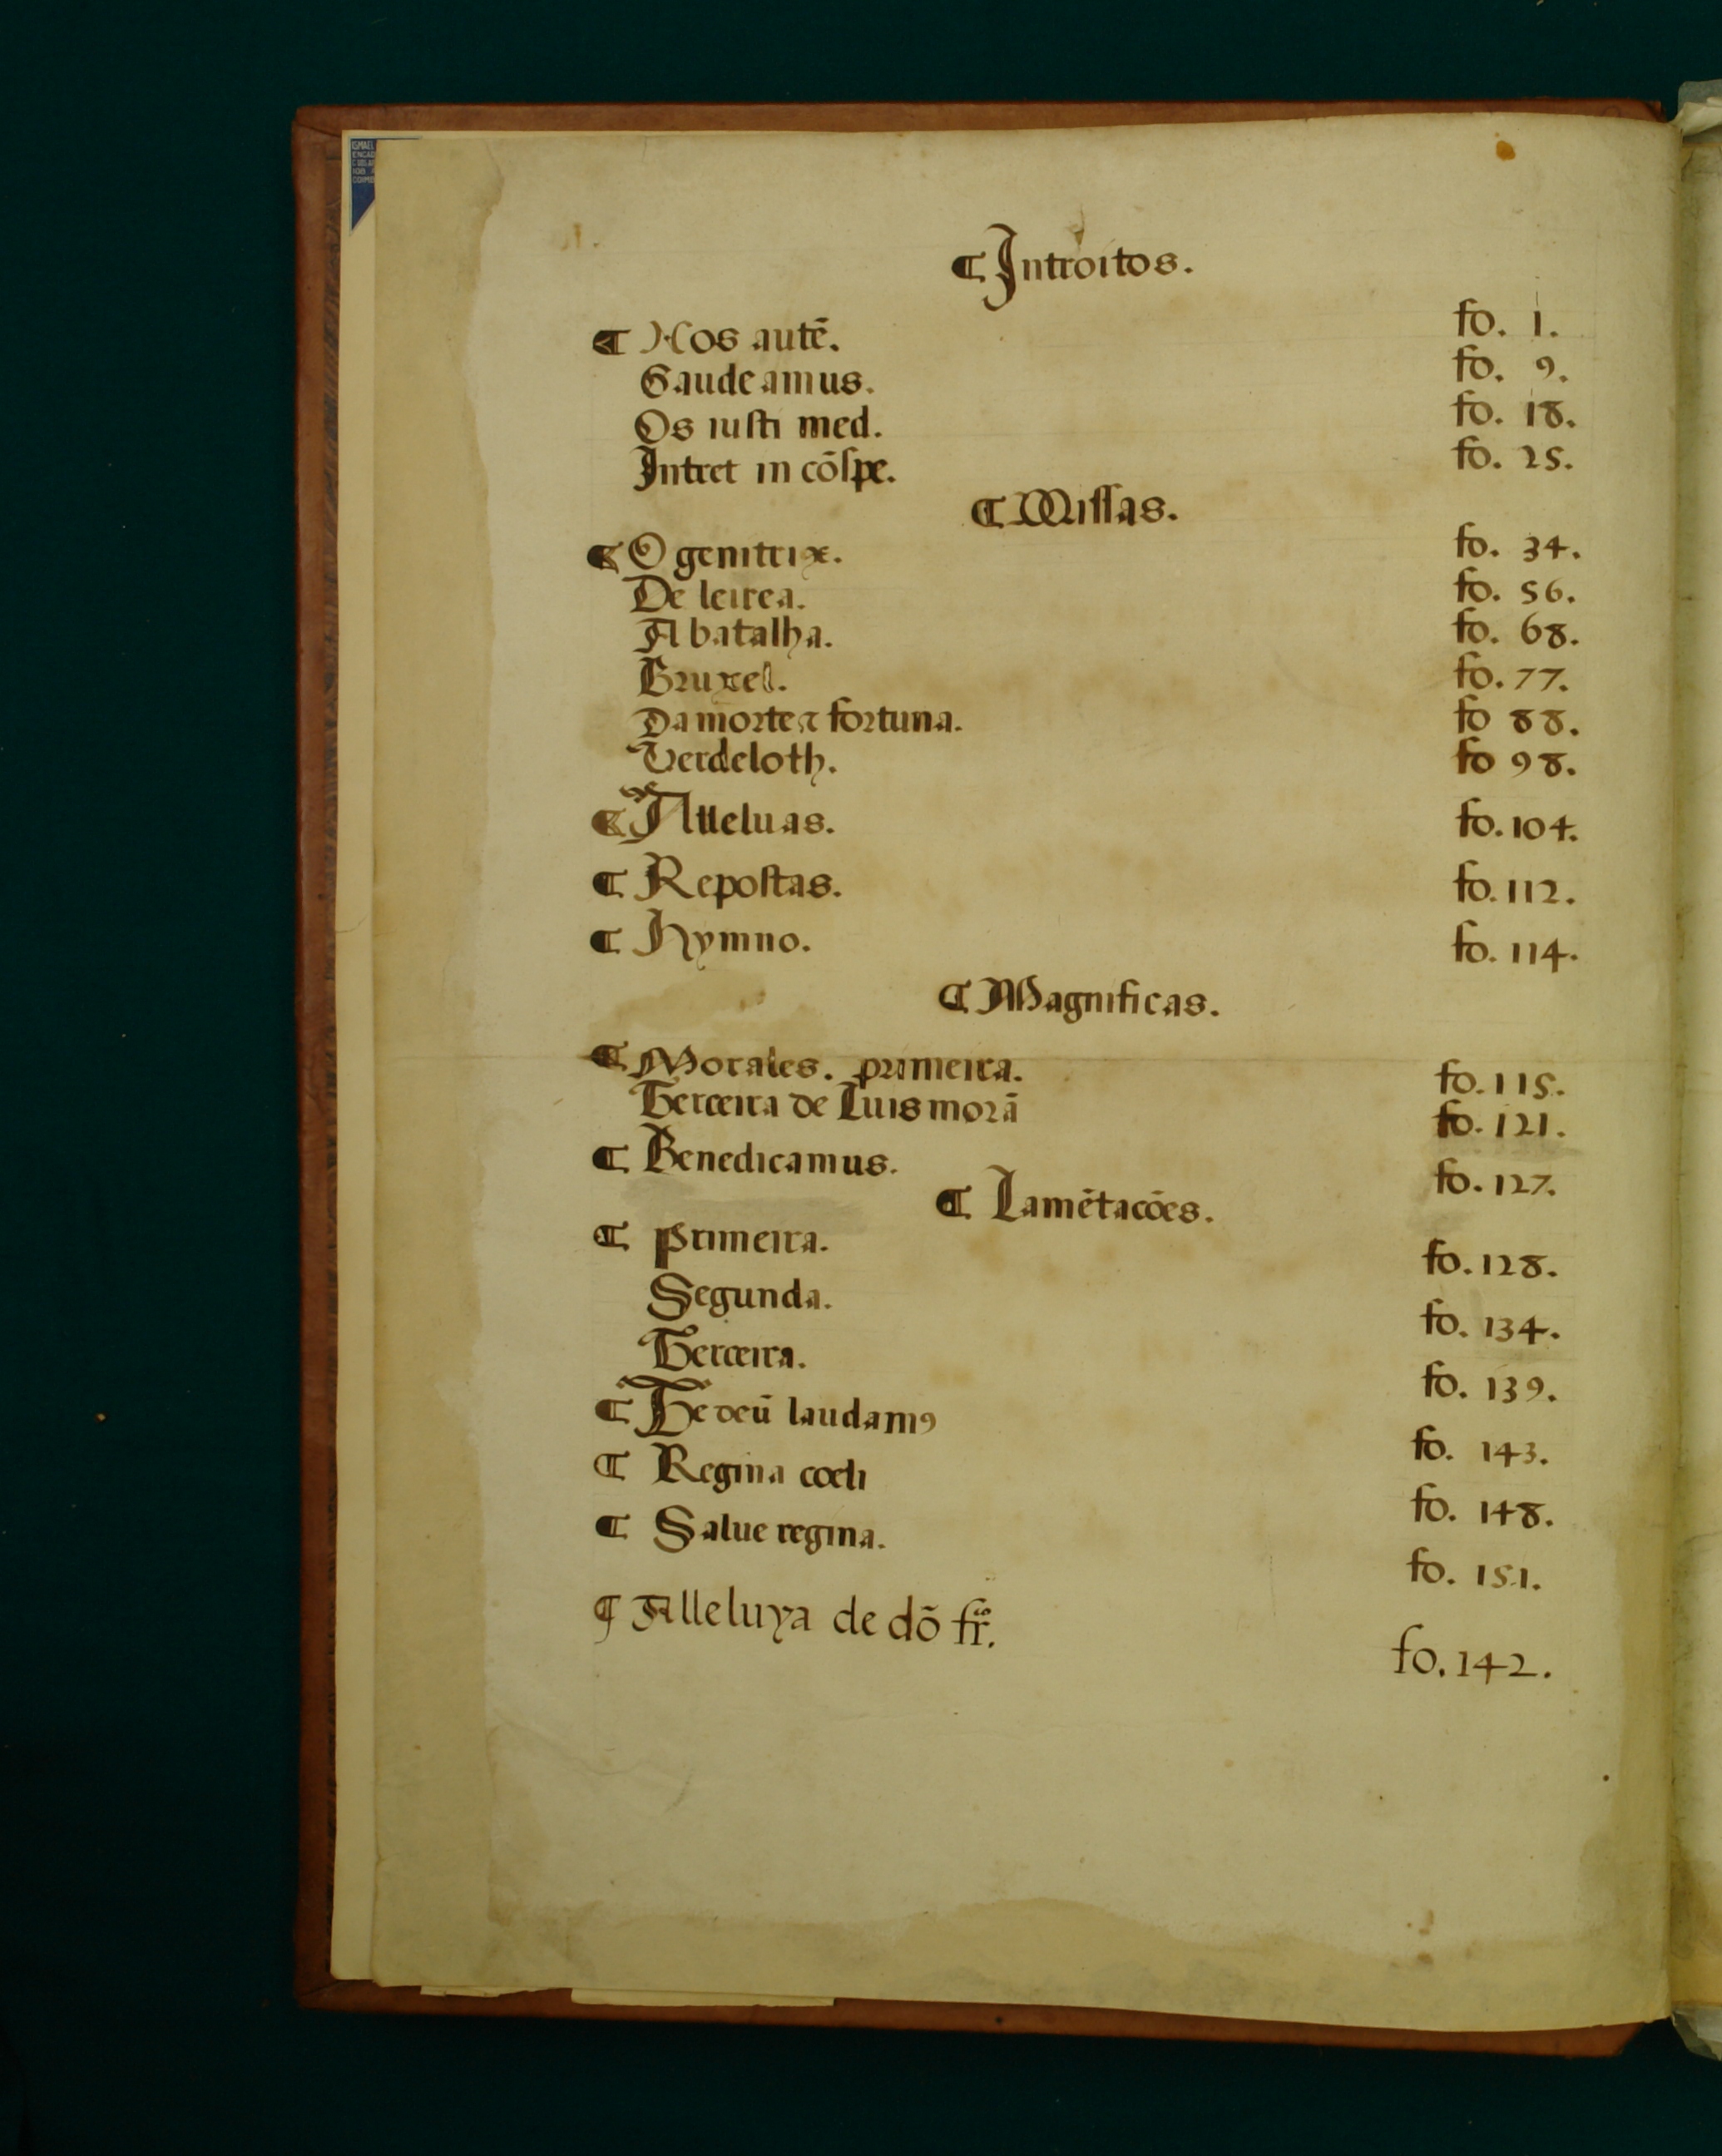 ¶ Introitos.
¶ Nos autē. fo. 1.
Gaudeamus. fo. 9.
Os iusti med. fo. 18.
Intret in cōspe. fo. 25.
¶ Missas.
¶ O genitrix. fo. 34.
De leirea. fo. 56.
A batalha. fo. 68.
Bruxel. fo. 77.
Da morte & fortuna. fo 88.
Verdeloth. fo 98.
¶ Alleluas. fo. 104.
¶ Repostas. fo. 112.
¶ Hymno. fo. 114.
¶ Magnificas.
¶ Morales. primeira. fo. 115.
Terceira de Luis morā fo. 121.
¶ Benedicamus. fo. 127.
¶ Lamētacões.
¶ Primeira. fo. 128.
Segunda. fo. 134.
Terceira. fo. 139.
¶ Te deū laudamꝰ fo. 143.
¶ Regina coeli fo. 148.
¶ Salue regina. fo. 151.
¶ Alleluya de dō frco. fo. 142.